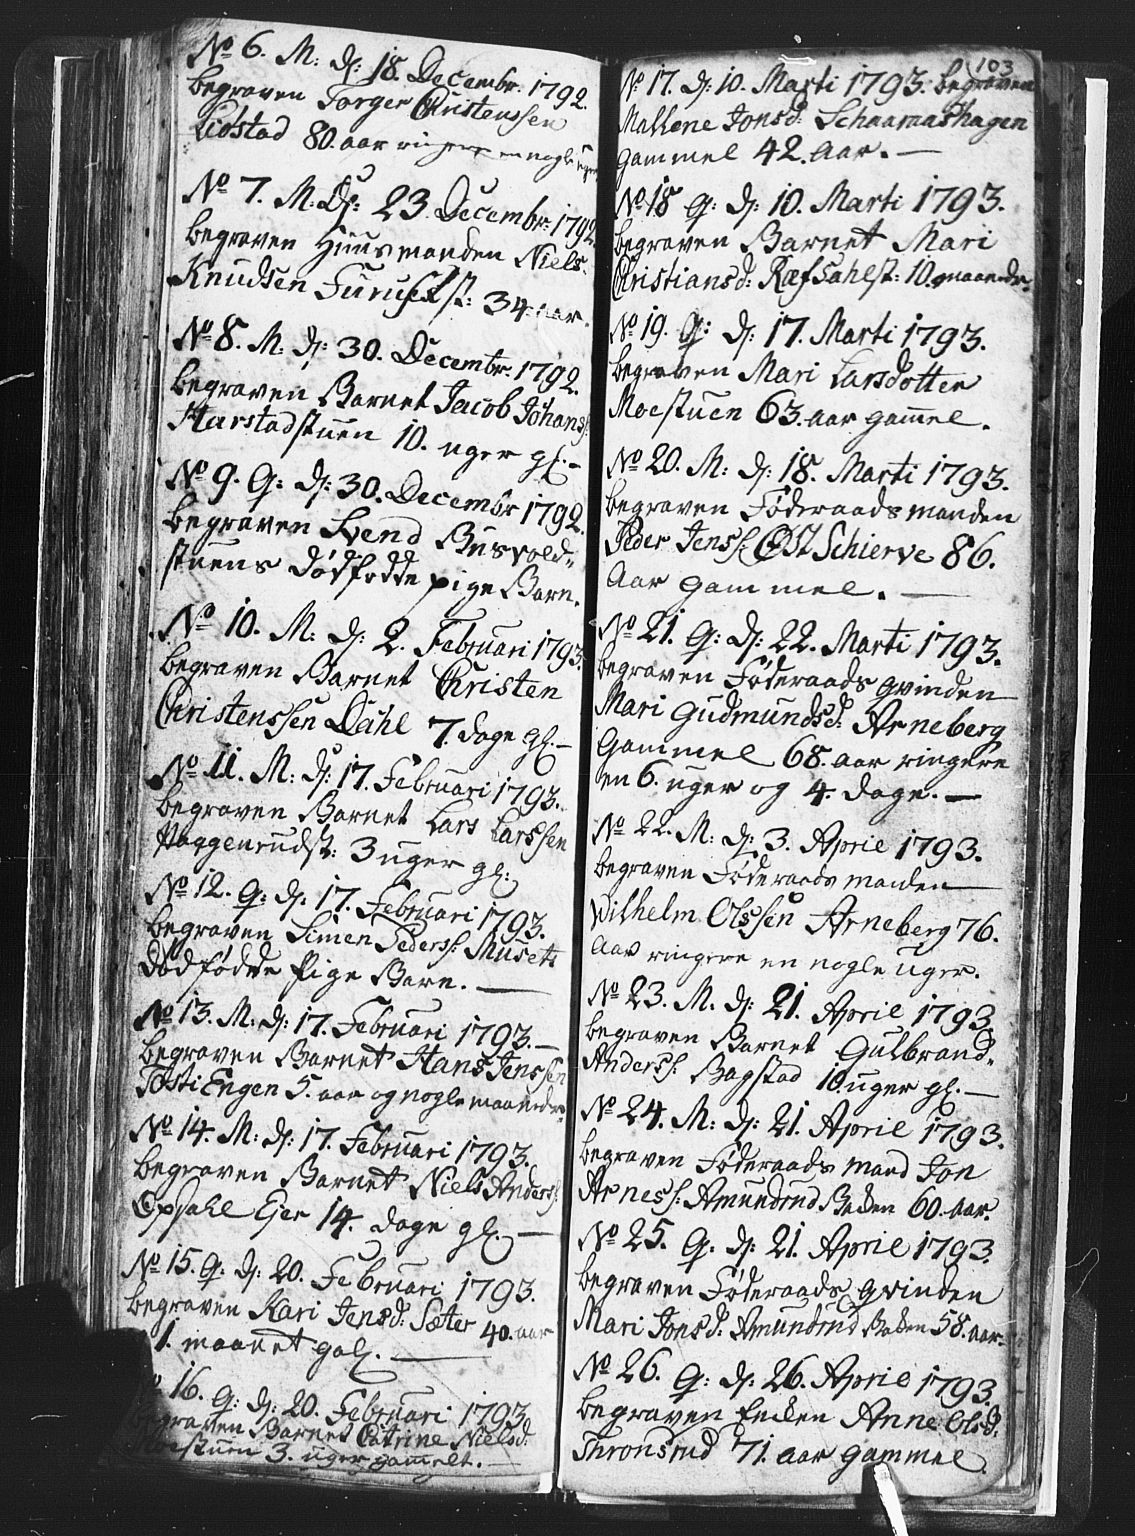 No 6. M: d: 18. Decembr. 1792.
begraven Torger Christenssen
Lidstad 80. aar ringere en nogle uger
No 7. M: D: 23. Decembr: 1792
begraven Huusmanden Niels
Knudsen Furusest: 34. aar.
No 8. M: d: 30. Decembr. 1792.
begraven Barnet Jacob Johans:
Harstadstuen 10. uger gl. -
No 9. Q: d: 30. Decembr 1792.
begraven Svend Busvold-
stuens dødfødde pige Barn.
No 10. M: d: 2. Februari 1793.
begraven Barnet Christen
Christenssen Dahl 7. dage gl. -
No 11. M: d: 17. Februari 1793.
begraven Barnet Lars Larssen
Haggenrudst: 3 uger gl:
No 12. Q: d: 17. Februari 1793.
begraven Simen Peders: Musets
dødfødde Pige Barn. -
No 13. M: d: 17. Februari 1793. -
begraven Barnet Hans Jenssen
Engen 5. aar og nogle maaneder
No 14. M: d: 17. Februari 1793.
begraven Barnet Niels Anders:
Opsahl Ejer 14. dage gl. -
No 15. Q: d: 20. Februari 1793.
begraven Kari Jensd: Sæter 40. aar
1. maanet gal. -
No 16. Q: d: 20. Februari 1793.
begraven Barnet Catrine Nielsd:
Moestuen 3. uger gammelt. -
103
No 17. d: 10. Marti 1793. begraven
Mallene Jonsd: Schaaraashagen
gammel 42. aar. -
No 18 Q: d: 10. Marti 1793.
begraven Barnet Mari
Christiansd: Ræfsahlst: 10. maaneder.
No 19. Q: d: 17. Marti 1793.
begraven Mari Larsdotter
Moestuen 63. aar gammel.
No 20. M: d: 18. Marti 1793.
begraven Føderaadsmanden
Peder Jenss: Øst Schierve 86.
Aar gammel. -
No 21. Q: d: 22. Marti 1793.
begraven Føderaads qvinden
Mari Gudmundsd: Arneberg
gammel 68. aar ringere
en 6. uger og 4. dage. -
No 22. M: d: 3. April 1793.
begraven Føderaads manden
Wilhelm Olssen Arneberg 76.
aar ringere en nogle uger.
No 23. M. d: 21. April 1793.
begraven Barnet Gulbrand
Anderss: Bagstad 10. uger gl. -
No 24. M: d: 21. April 1793.
begraven Føderaads mand Jon
Arness: Amundrud Baken 60. aar.
No 25. Q: d: 21. April 1793.
begraven Føderaads qvinden
Mari Jonsd: Amundrud Baken 58. aar.
No 26. Q: d: 26. April 1793.
begraven Enken Anne Olsd:
Thronsrud 71. aar gammel.